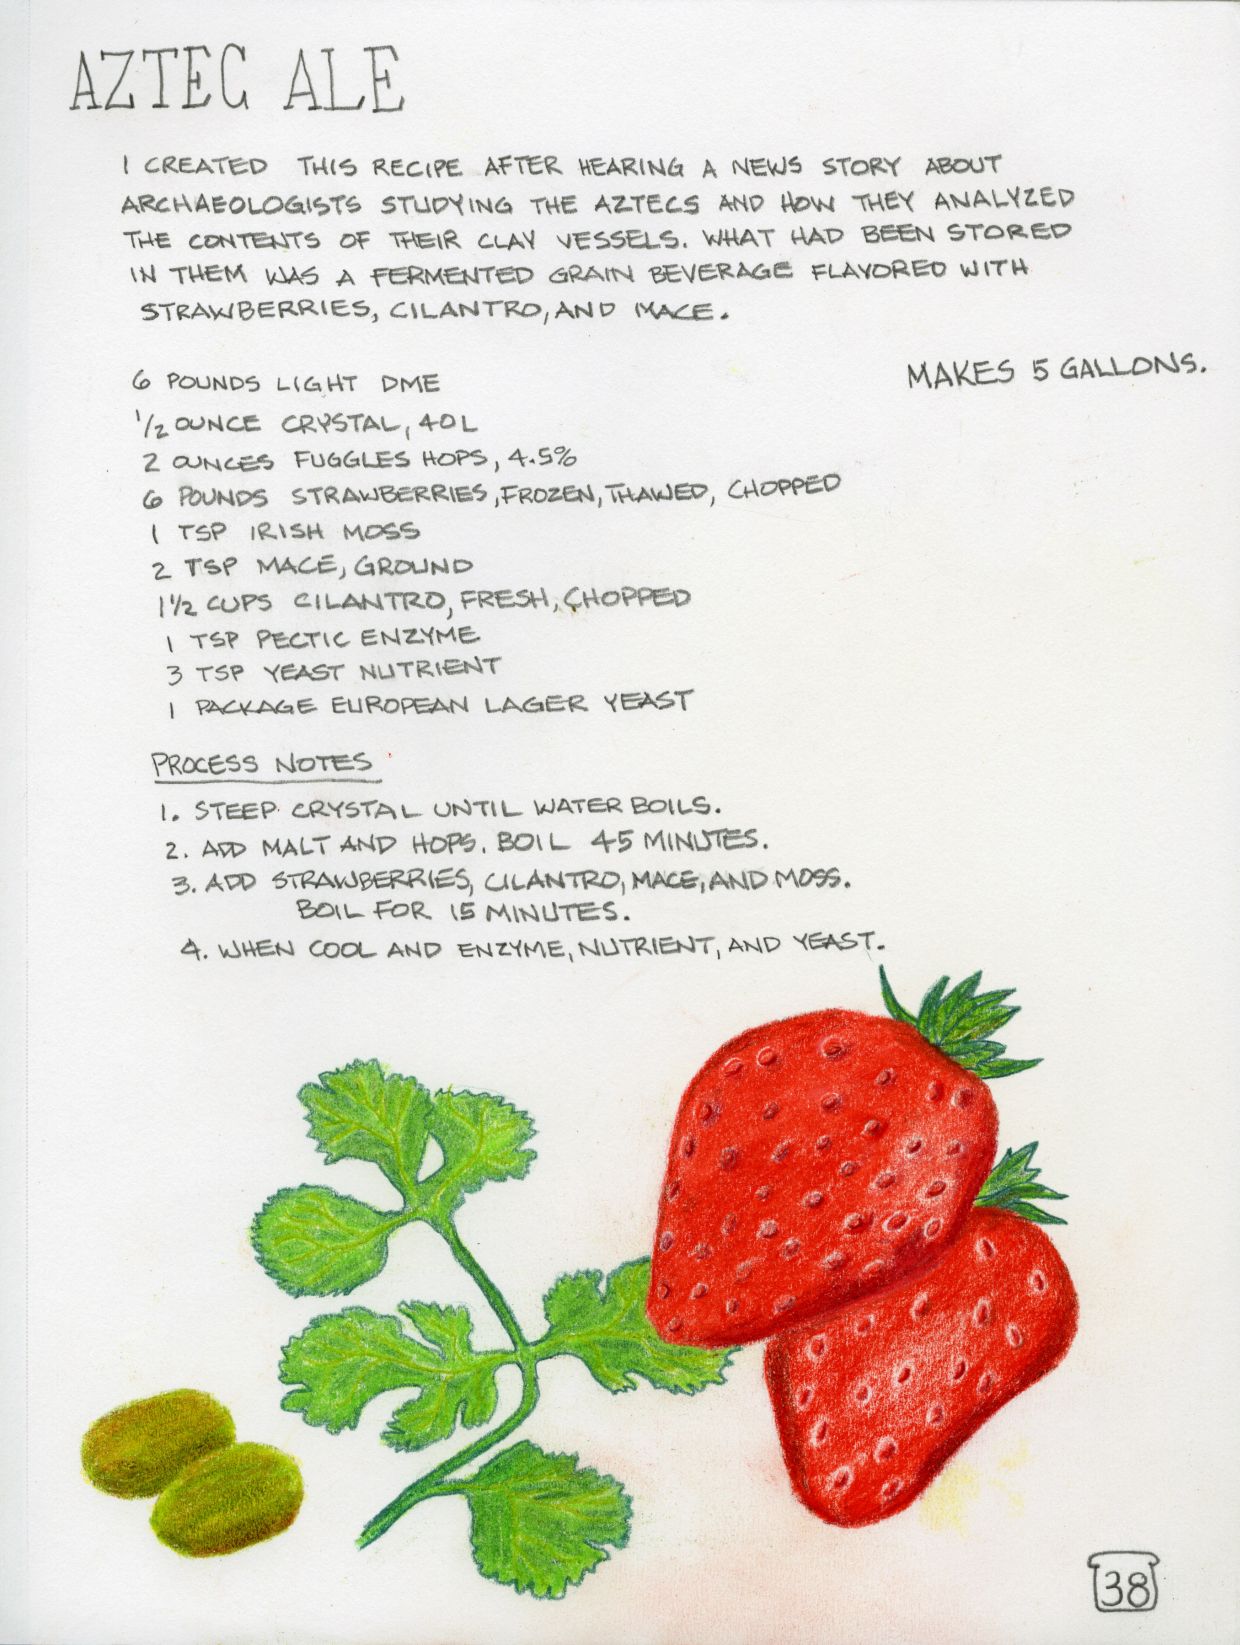 AZTEC ALE
I CREATED THIS RECIPE AFTER HEARING A NEWS STORY ABOUT
ARCHAEOLOGISTS STUDYING THE AZTECS AND HOW THEY ANALYZED
THE CONTENTS OF THEIR CLAY VESSELS. WHAT HAD BEEN STORED
IN THEM WAS A FERMENTED GRAIN BEVERAGE FLAVORED WITH
STRAWBERRIES, CILANTRO, AND MACE.
MAKES 5 GALLONS.
6 POUNDS LIGHT DME
1/2 OUNCE CRYSTAL, 40L
2 OUNCES FUGGLES HOPS, 4.5%
6 POUNDS STRAWBERRIES, FROZEN, THAWED, CHOPPED
1 TSP IRISH MOSS
2 TSP MACE, GROUND
1 1/2 CUPS CILANTRO, FRESH, CHOPPED
1 TSP PECTIC ENZYME
3 TSP YEAST NUTRIENT
1 PACKAGE EUROPEAN LAGER YEAST
PROCESS NOTES
1. STEEP CRYSTAL UNTIL WATER BOILS.
2. ADD MALT AND HOPS. BOIL 45 MINUTES.
3. ADD STRAWBERRIES, CILANTRO, MACE, AND MOSS.
BOIL FOR 15 MINUTES.
4. WHEN COOL AND ENZYME, NUTRIENT, AND YEAST.
38